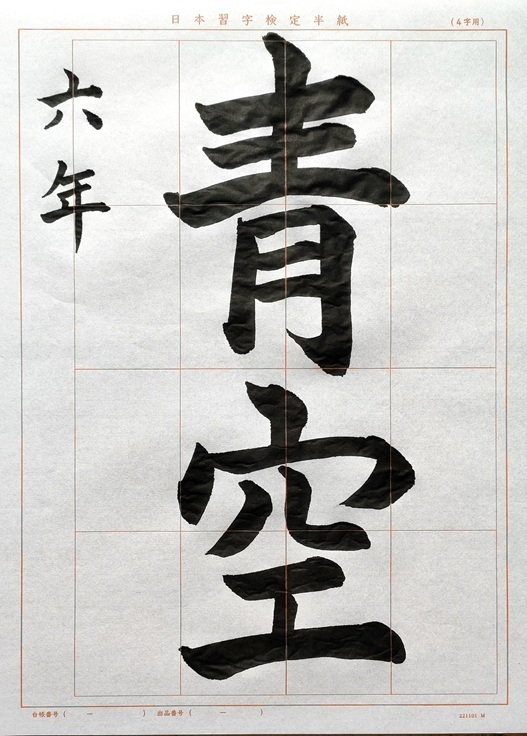 日本習字検定半紙
(4字用)
青空
六年
台帳番号 ( ー ) 出品番号 ( ー )